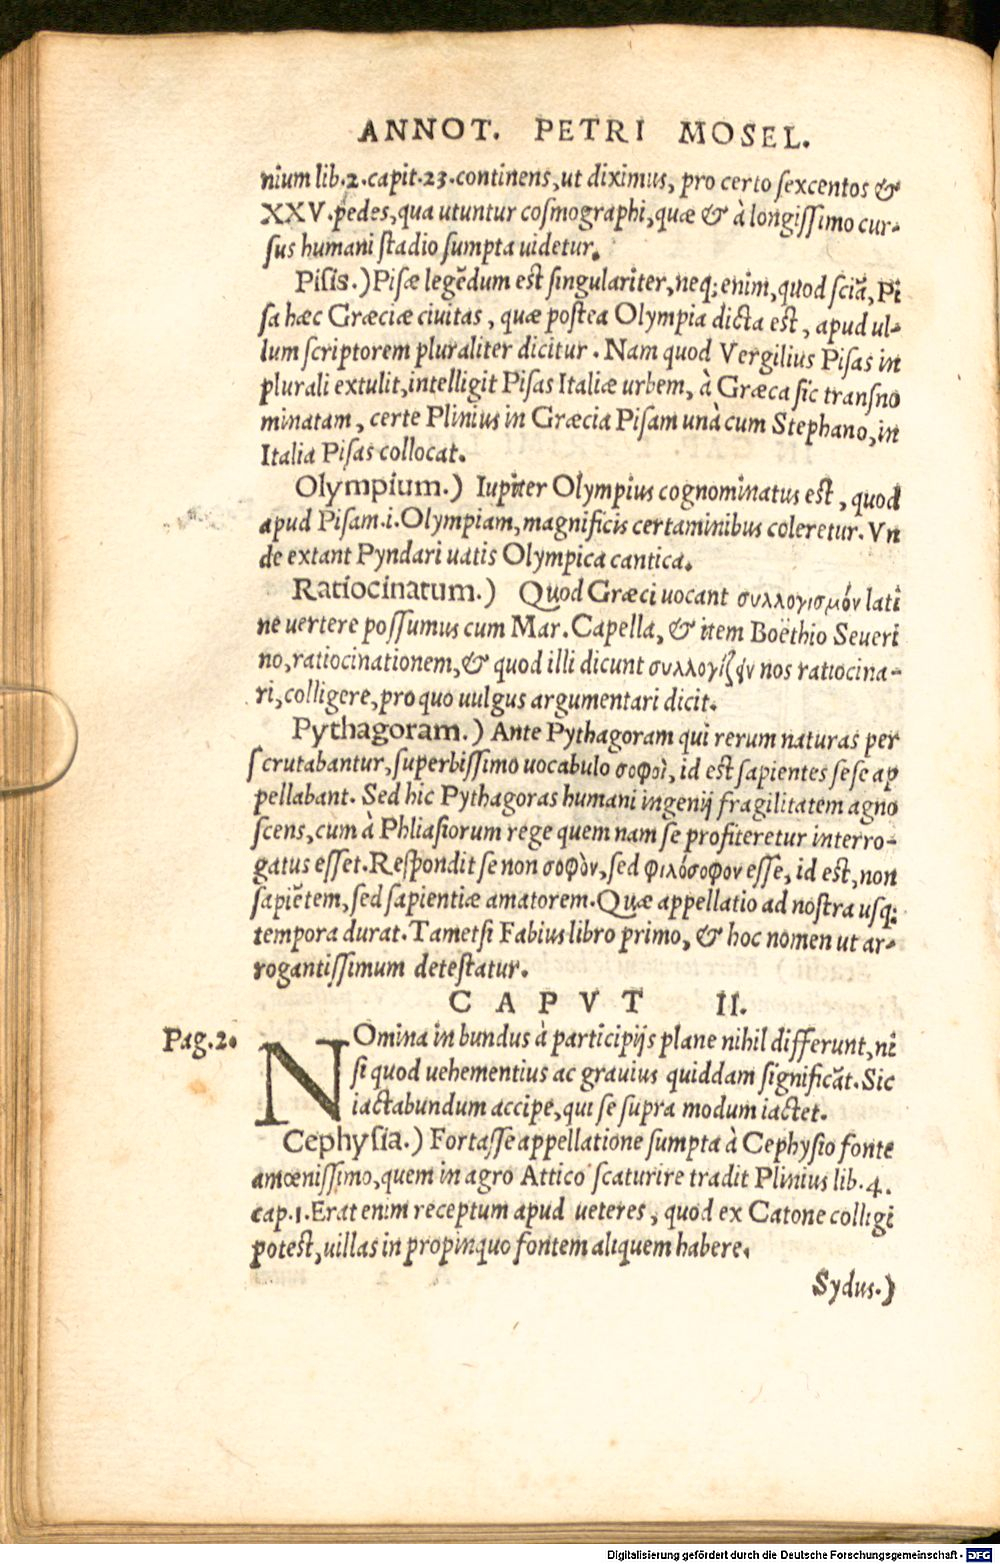 ANNOT. PETRI MOSEL.
nium lib.2.capit.23.continens,ut diximus, pro certo sexcentos &
XXV.pedes,qua utuntur cosmographi,quæ & à longissimo cur-
sus humani stadio sumpta uidetur.
Pisis.) Pisæ legẽdum est singulariter,neq; enim,quod sciã, Pi
sa hæc Græciæ ciuitas, quæ postea Olympia dicta est, apud ul-
lum scriptorem pluraliter dicitur. Nam quod Vergilius Pisas in
plurali extulit,intelligit Pisas Italiæ urbem, à Græca sic transno
minatam, certe Plinius in Græcia Pisam unà cum Stephano,in
Italia Pisas collocat.
Olympium.) Iupiter Olympius cognominatus est, quod
apud Pisam.i.Olympiam,magnificis certaminibus coleretur. Vn
de extant Pyndari uatis Olympica cantica.
Ratiocinatum.) Quod Græci uocant συλλογισμόν lati
ne uertere possumus cum Mar. Capella, & item Boëthio Seueri
no,ratiocinationem,& quod illi dicunt συλλογίζειν nos ratiocina-
ri,colligere,pro quo uulgus argumentari dicit.
Pythagoram.) Ante Pythagoram qui rerum naturas per
scrutabantur,superbissimo uocabulo σοφοὶ, id est sapientes sese ap
pellabant. Sed hic Pythagoras humani ingenij fragilitatem agno
scens,cum à Phliasiorum rege quem nam se profiteretur interro-
gatus esset. Respondit se non σοφὸν, sed φιλόσοφον esse, id est,non
sapiẽtem,sed sapientiæ amatorem. Quæ appellatio ad nostra usq;
tempora durat. Tametsi Fabius libro primo, & hoc nomen ut ar-
rogantissimum detestatur.
CAPVT II.
Pag.2.
NOmina in bundus à participijs plane nihil differunt,ni
si quod uehementius ac grauius quiddam significãt. Sic
iactabundum accipe,qui se supra modum iactet.
Cephysia.) Fortasse appellatione sumpta à Cephysio fonte
amœnissimo,quem in agro Attico scaturire tradit Plinius lib.4.
cap.1.Erat enim receptum apud ueteres, quod ex Catone colligi
potest,uillas in propinquo fontem aliquem habere.
Sydus.)
Digitalisierung gefördert durch die Deutsche Forschungsgemeinschaft - DFG